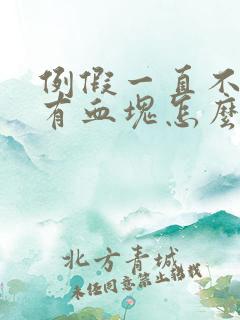 例假一直不
有血块怎么
北方青城
未经同意禁止转载